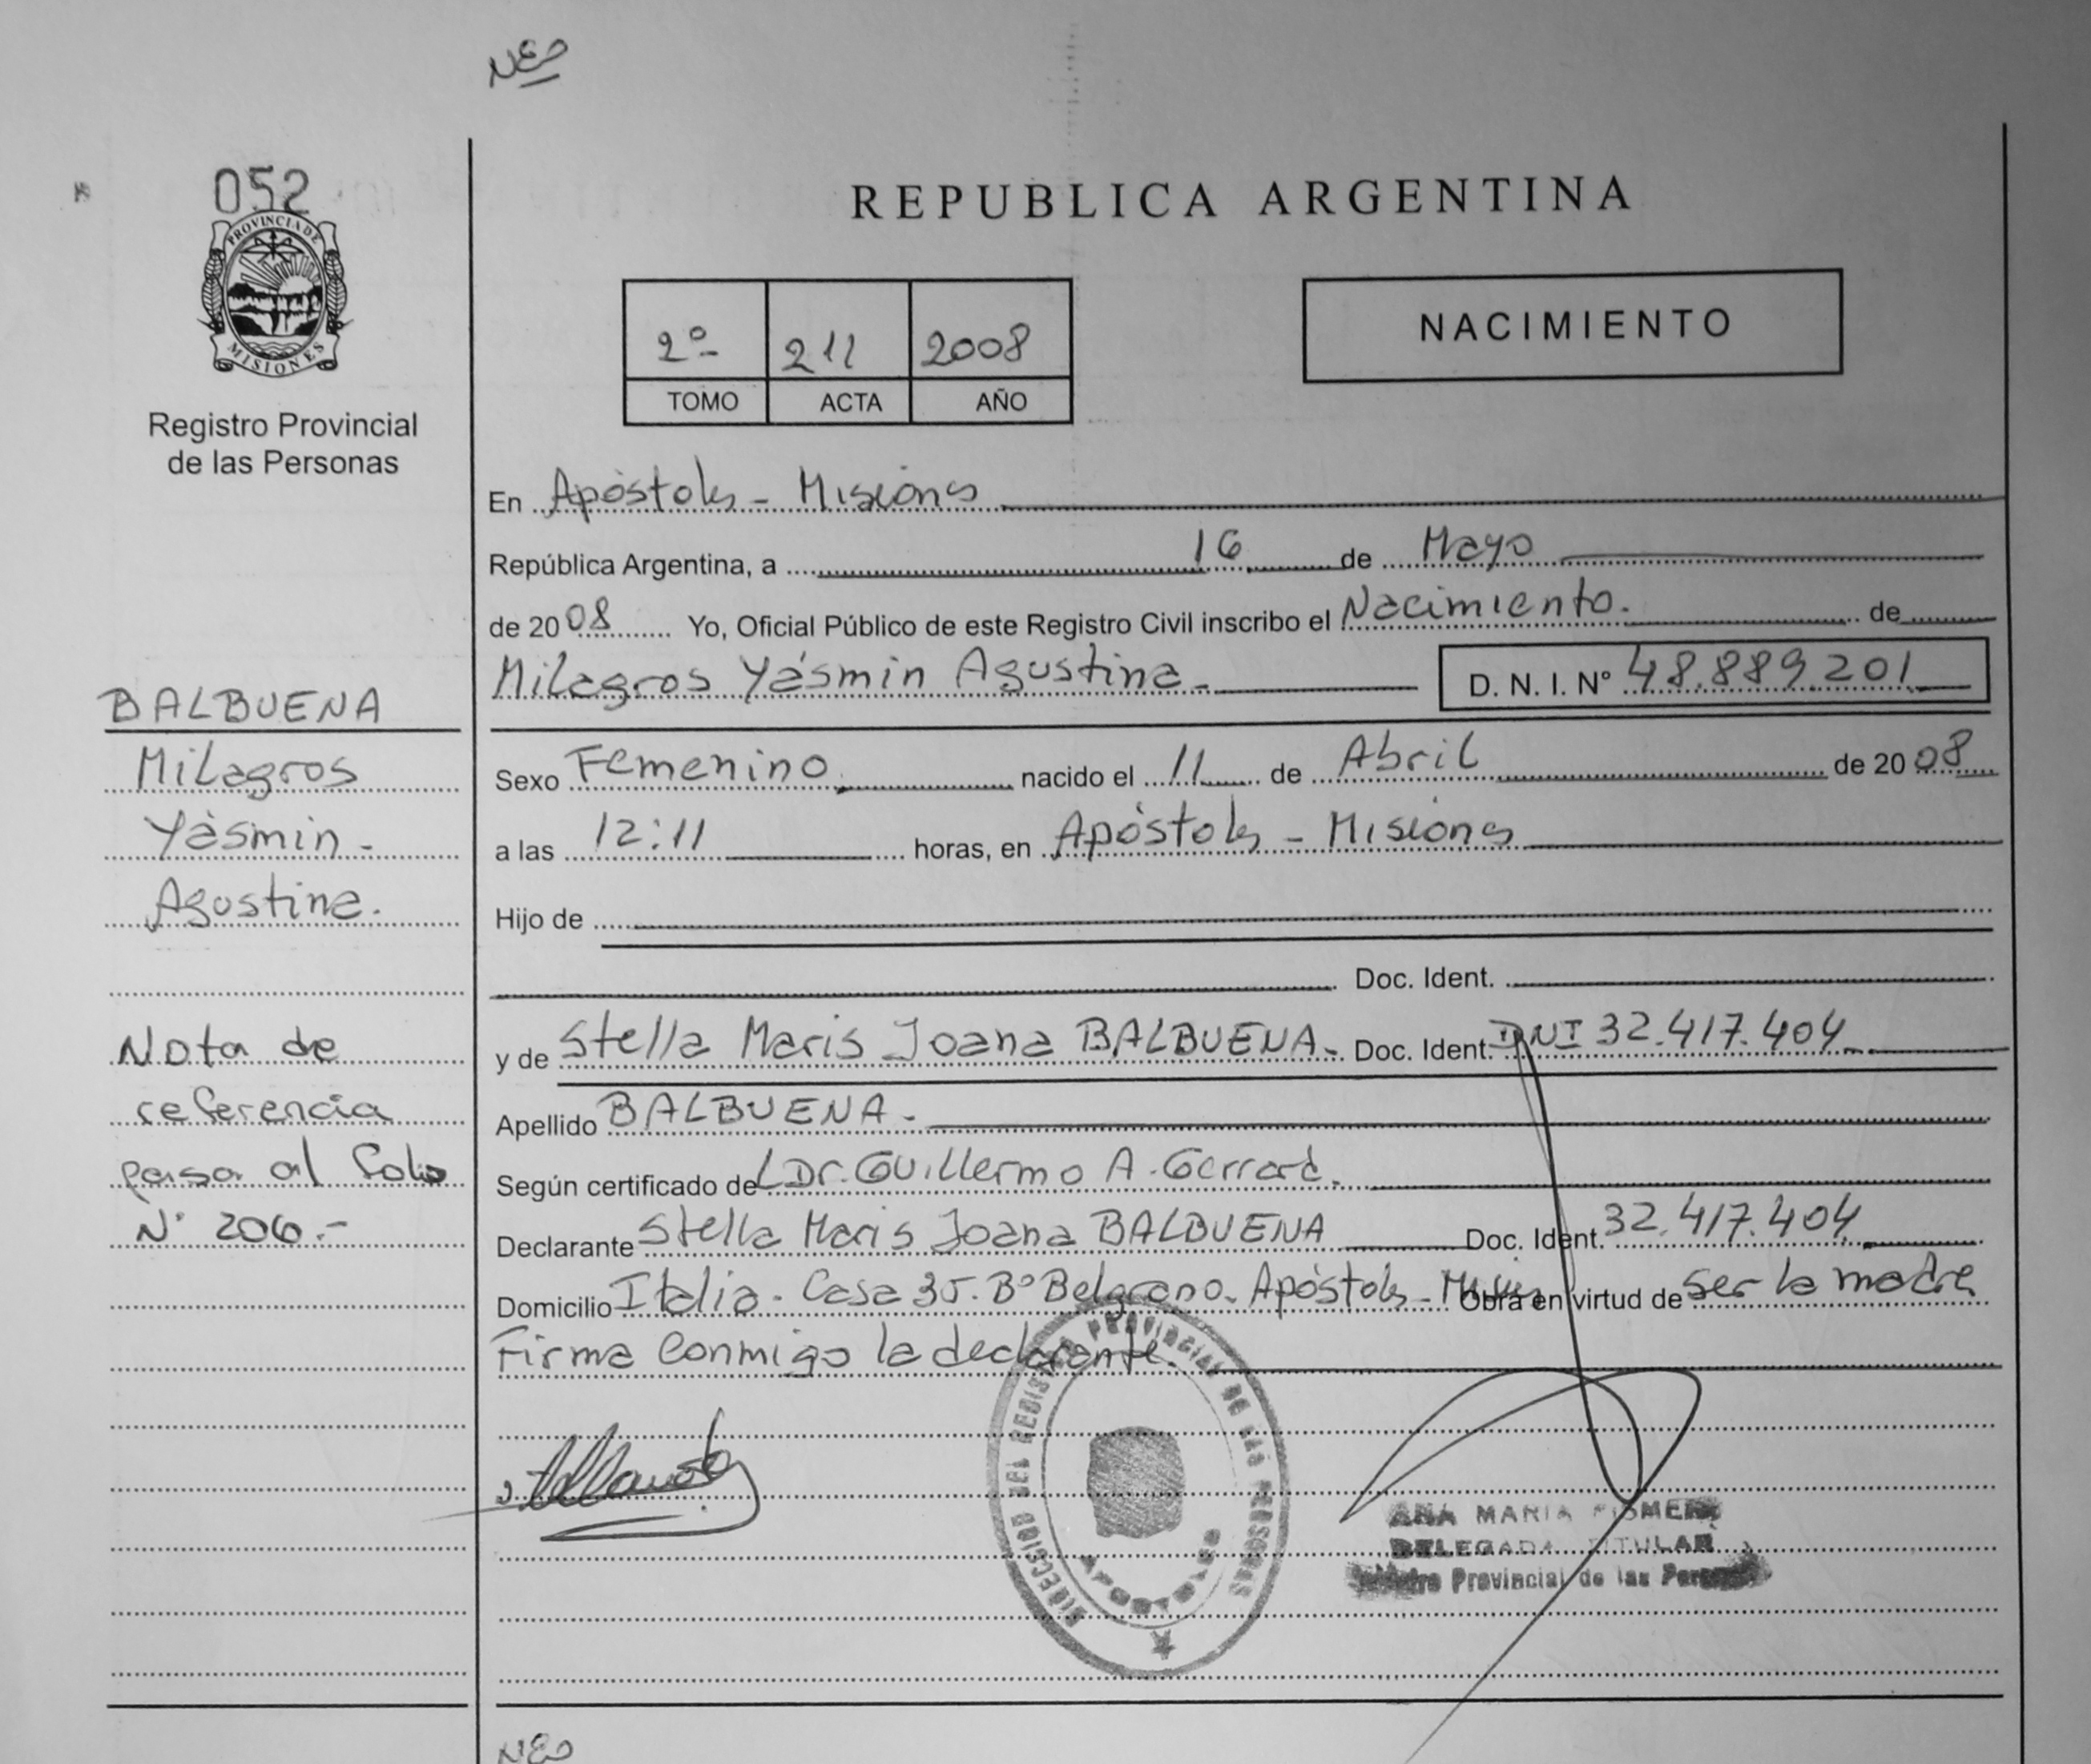 052
PROVINCIA DE
MISIONES
Registro Provincial
de las Personas
REPUBLICA ARGENTINA
2º 211 2008
TOMO ACTA AÑO
NACIMIENTO
En Apóstoles - Misiones
República Argentina, a 16 de Mayo
de 2008 Yo, Oficial Público de este Registro Civil inscribo el Nacimiento. de
Milagros Yásmin Agustina - D. N. I. Nº 48.889.201
BALBUENA
Milagros
Yásmin -
Agustina.
Sexo Femenino nacido el 11 de Abril de 2008
a las 12:11 horas, en Apóstoles - Misiones
Hijo de
Doc. Ident.
y de Stella Maris Joana BALBUENA - Doc. Ident. DNI 32.417.404
Apellido BALBUENA -
Según certificado de Dr. Guillermo A.
Declarante Stella Maris Joana BALBUENA Doc. Ident. 32.417.404
Domicilio Italia - Casa 35 - Bº Belgrano - Apóstoles - Obra en virtud de ser la madre
Firma conmigo la declarante.
Nota de
referencia
pasa al folio
Nº 206.-
DIRECCION DEL REGISTRO PROVINCIAL DE LAS PERSONAS
APOSTOLES
ANA MARIA
DELEGADA TITULAR
Provincial de las